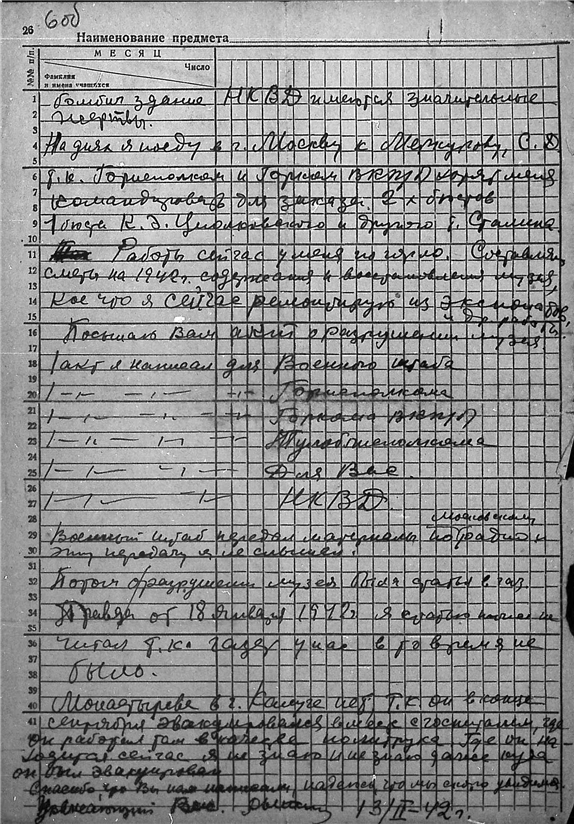 26
606
Наименование предмета
МЕСЯЦ
Число
№№ п/п.
Фамилия
и имена учащихся
1 бомбил здание НКВД имеются значительные
2 жертвы.
3
4 На днях я поеду в г. Москву к Меркурову, С. Д
5
6 т.к. Горисполком и Горком ВКП/б хотят меня
7
8 командировать для заказа 2х бюстов
9 1 бюста К. Э. Циолковского и другого т. Сталина.
10
11 Работы сейчас у меня по горло. Составляю
12 сметы на 1942г. содержания и восстановления музея,
13
14 Кое что я сейчас ремонтирую из экспонатов,
15 и др. работы.
16 Посылаю Вам акт о разрушении музея
17
18 1 акт я написал для Военного штаба
19
20 1 -"- — -"- -"- Горисполкома
21
22 1 -"- — -"- -"- Горкома ВКП/б
23 1 -"- — -"- — Тулоблисполкома
24
25 1 -"- — -"- Для Вас.
26
27 1 -"- -"- НКВД.
28 московскому
29 Военный штаб передал материалы по радио и
30 эту передачу я не слышал.
31
32 Потом о разрушении музея была статья в газ.
33
34 Правда от 18 января 1942г. я статью
35
36 читал т.к. газет у нас в то время не
37
38 было.
39
40 Монастырева в г. Калуге нет т.к. он в конце
41 сентября эвакуировался вместе с госпиталем, где
он работал там в качестве политрука. Где он на-
ходится сейчас я не знаю и не знаю даже куда
он был эвакуирован
Спасибо, что Вы нам написали, надеюсь, что мы скоро увидимся.
Уважающий Вас 13/II-42г.